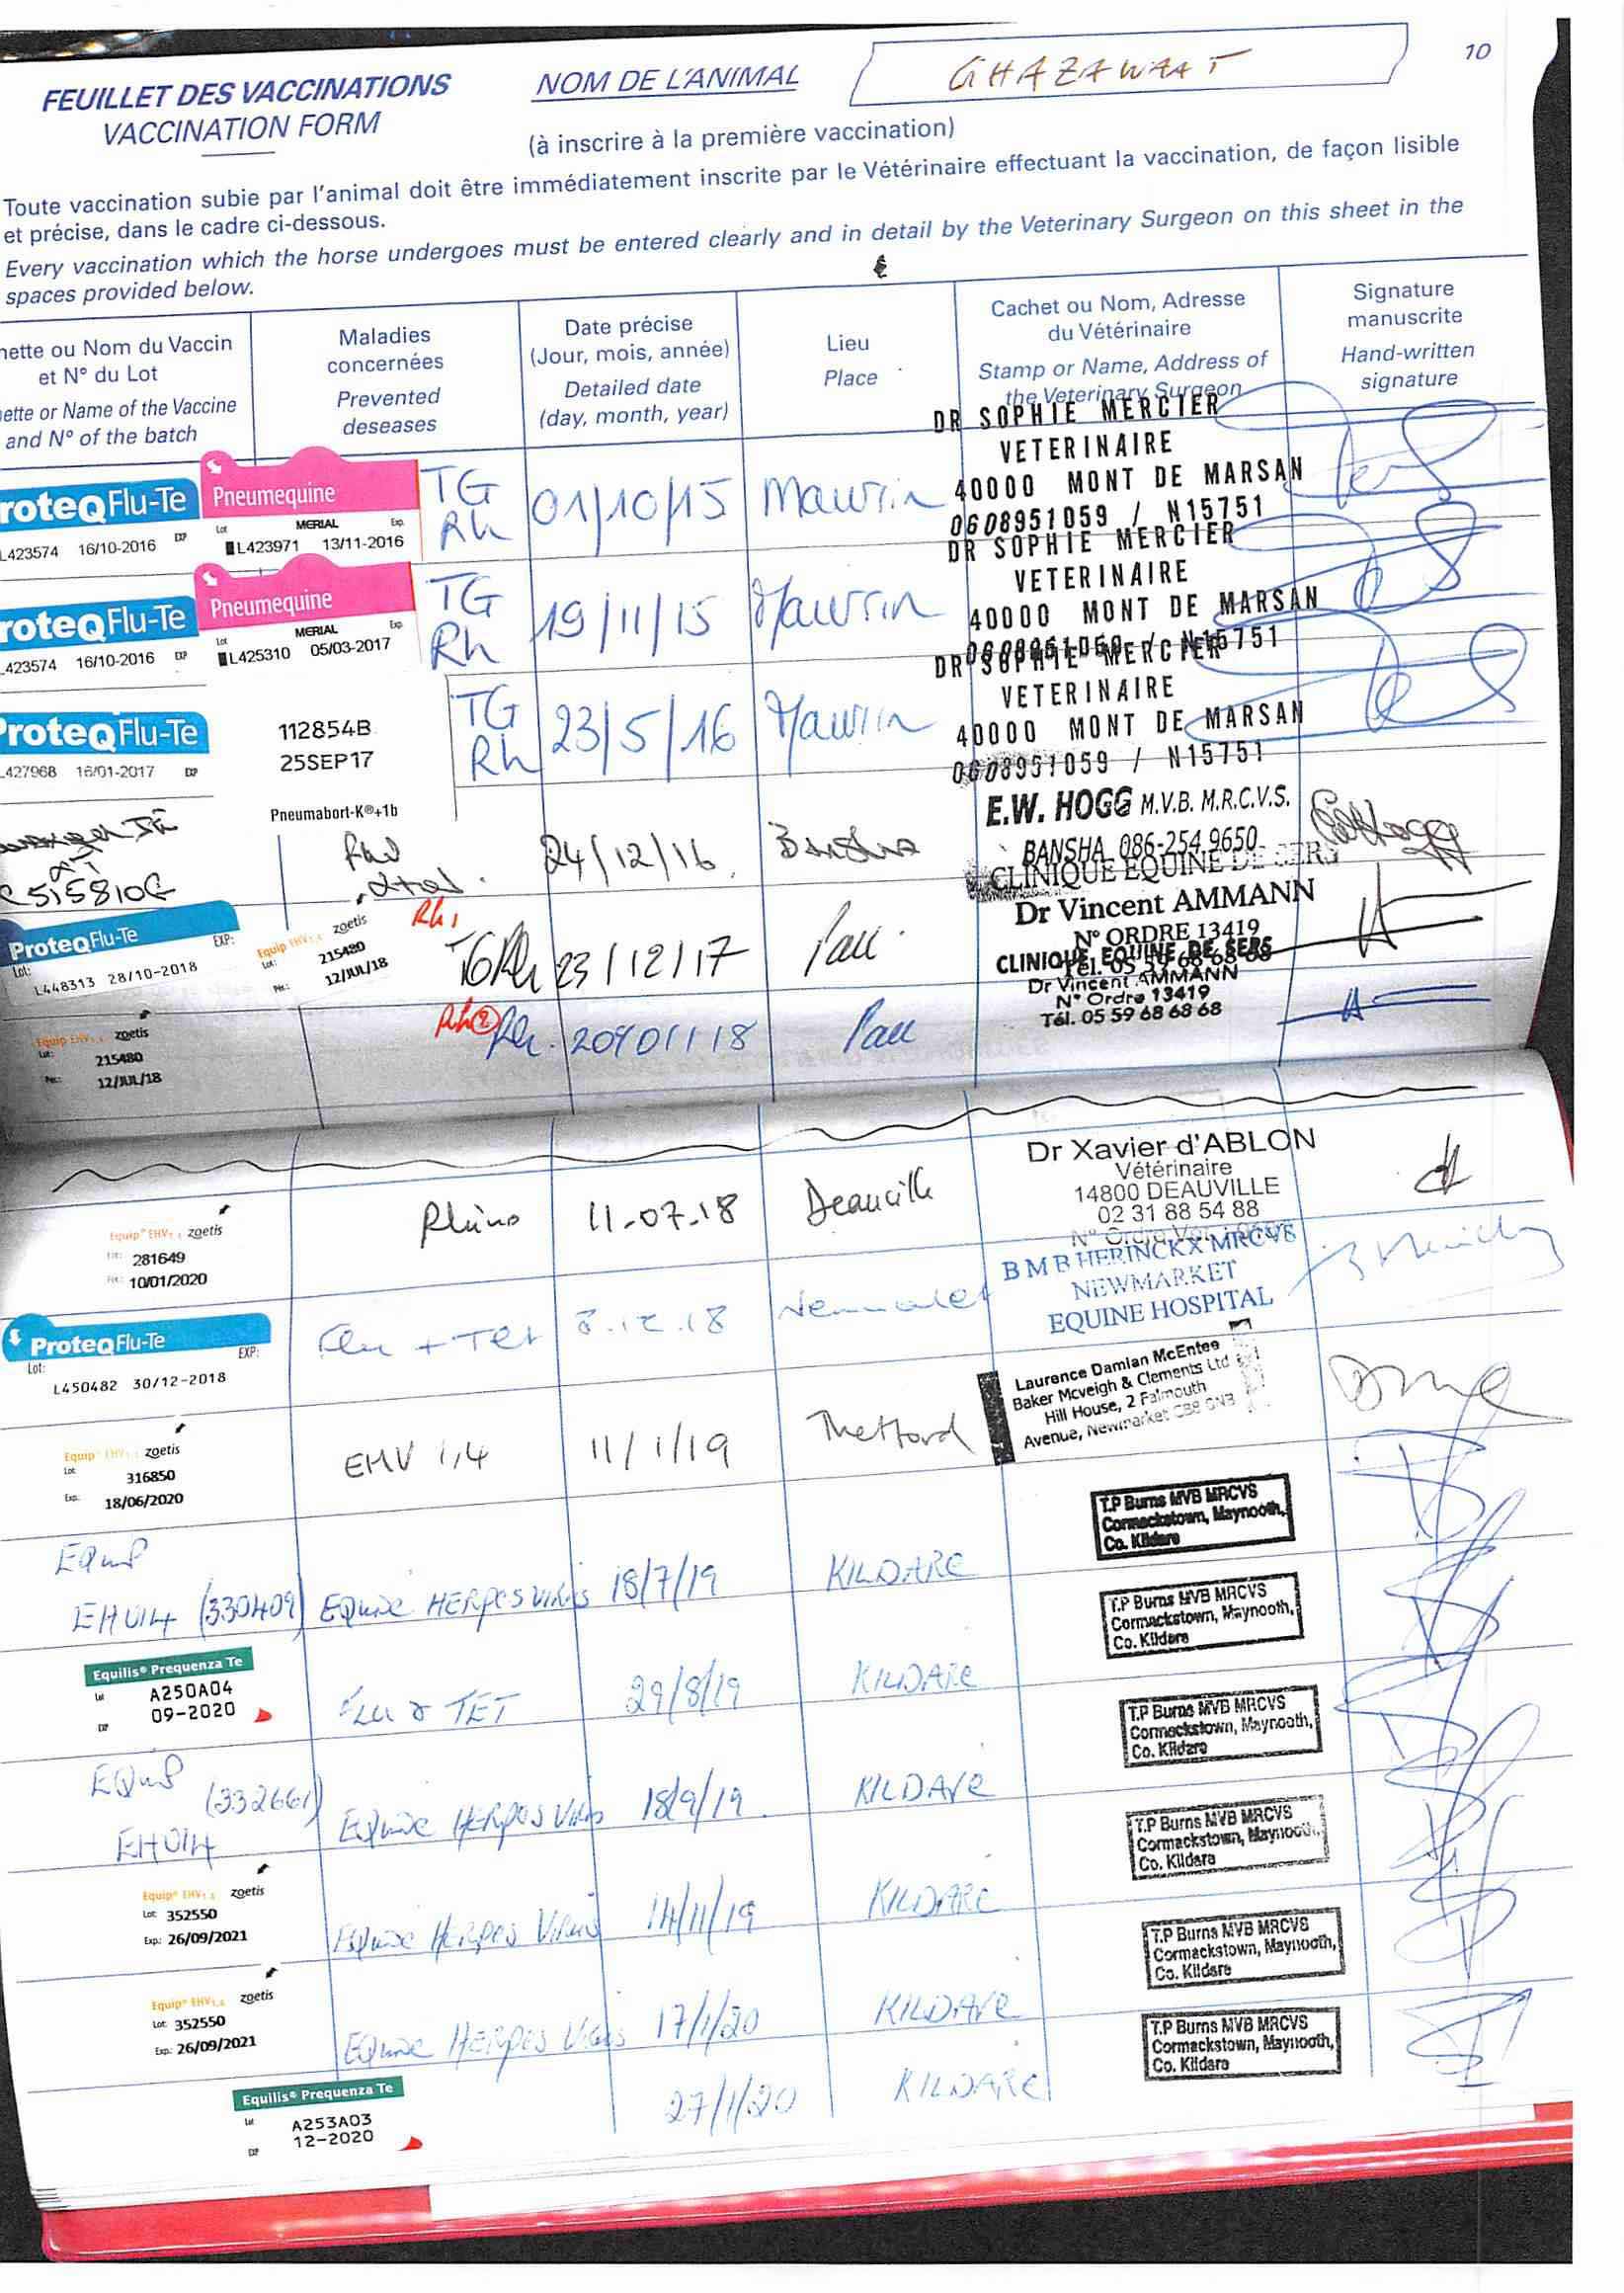 10
FEUILLET DES VACCINATIONS
VACCINATION FORM
NOM DE L'ANIMAL
GHAZAWAAT
(à inscrire à la première vaccination)
Toute vaccination subie par l'animal doit être immédiatement inscrite par le Vétérinaire effectuant la vaccination, de façon lisible
et précise, dans le cadre ci-dessous.
Every vaccination which the horse undergoes must be entered clearly and in detail by the Veterinary Surgeon on this sheet in the
spaces provided below.
nette ou Nom du Vaccin
et N° du Lot
nette or Name of the Vaccine
and N° of the batch
Maladies
concernées
Prevented
deseases
Date précise
(Jour, mois, année)
Detailed date
(day, month, year)
Lieu
Place
Cachet ou Nom, Adresse
du Vétérinaire
Stamp or Name, Address of
the Veterinary Surgeon
Signature
manuscrite
Hand-written
signature
roteqFlu-Te
L423574 16/10-2016 EXP
Pneumequine
Lot MERIAL Exp.
L423971 13/11-2016
TG
Rh
01/10/15
Maurrin
DR SOPHIE MERCIER
VETERINAIRE
40000 MONT DE MARSAN
0608951059 / N15751
roteqFlu-Te
L423574 16/10-2016 EXP
Pneumequine
Lot MERIAL Exp
L425310 05/03-2017
TG
Rh
19/11/15
Maurrin
DR SOPHIE MERCIER
VETERINAIRE
40000 MONT DE MARSAN
0608951059 / N15751
ProteqFlu-Te
L427968 16/01-2017 EXP
112854B
25SEP17
Pneumabort-K®+1b
TG
Rh
23/5/16
Maurrin
DR SOPHIE MERCIER
VETERINAIRE
40000 MONT DE MARSAN
0608951059 / N15751
515810G
24/12/16
Bansha
E.W. HOGG M.V.B. M.R.C.V.S.
BANSHA 086-254 9650
ProteqFlu-Te
Lot: EXP:
L448313 28/10-2018
Equip EHV1,4 zoetis
Lot: 215480
12/JUL/18
Rh1
TGRh
23/12/17
Pau
CLINIQUE EQUINE DE SERS
Dr Vincent AMMANN
N° ORDRE 13419
Tél. 05 59 68 68 68
Equip EHV1,4 zoetis
Lot: 215480
12/JUL/18
Rh2
Rh.
20/01/18
Pau
CLINIQUE EQUINE DE SERS
Dr Vincent AMMANN
N° Ordre 13419
Tél. 05 59 68 68 68
Equip® EHV1,4 zoetis
281649
10/01/2020
Rhino
11-07-18
Deauville
Dr Xavier d'ABLON
Vétérinaire
14800 DEAUVILLE
02 31 88 54 88
ProteqFlu-Te
Lot: EXP:
L450482 30/12-2018
Flu + Tet
3.12.18
Newmarket
B M B HERINCKX MRCVS
NEWMARKET
EQUINE HOSPITAL
Equip® EHV1,4 zoetis
Lot: 316850
Exp.: 18/06/2020
EHV 1,4
11/1/19
Thetford
Laurence Damian McEntee
Baker Mcveigh & Clements Ltd
Hill House, 2 Falmouth
Avenue, Newmarket CB8 0NB
Equip
EHV14 (330409)
EQUINE HERPES VIRUS
18/7/19
KILDARE
T.P Burns MVB MRCVS
Cormackstown, Maynooth,
Co. Kildare
Equilis® Prequenza Te
Lot A250A04
EXP 09-2020
FLU & TET
29/8/19
KILDARE
T.P Burns MVB MRCVS
Cormackstown, Maynooth,
Co. Kildare
Equip
(332661)
EHV14
EQUINE HERPES VIRUS
18/9/19
KILDARE
T.P Burns MVB MRCVS
Cormackstown, Maynooth,
Co. Kildare
Equip® EHV1,4 zoetis
Lot: 352550
Exp.: 26/09/2021
EQUINE HERPES VIRUS
14/11/19
KILDARE
T.P Burns MVB MRCVS
Cormackstown, Maynooth,
Co. Kildare
Equip® EHV1,4 zoetis
Lot: 352550
Exp.: 26/09/2021
EQUINE HERPES VIRUS
17/1/20
KILDARE
T.P Burns MVB MRCVS
Cormackstown, Maynooth,
Co. Kildare
Equilis® Prequenza Te
Lot A253A03
EXP 12-2020
27/1/20
KILDARE
T.P Burns MVB MRCVS
Cormackstown, Maynooth,
Co. Kildare